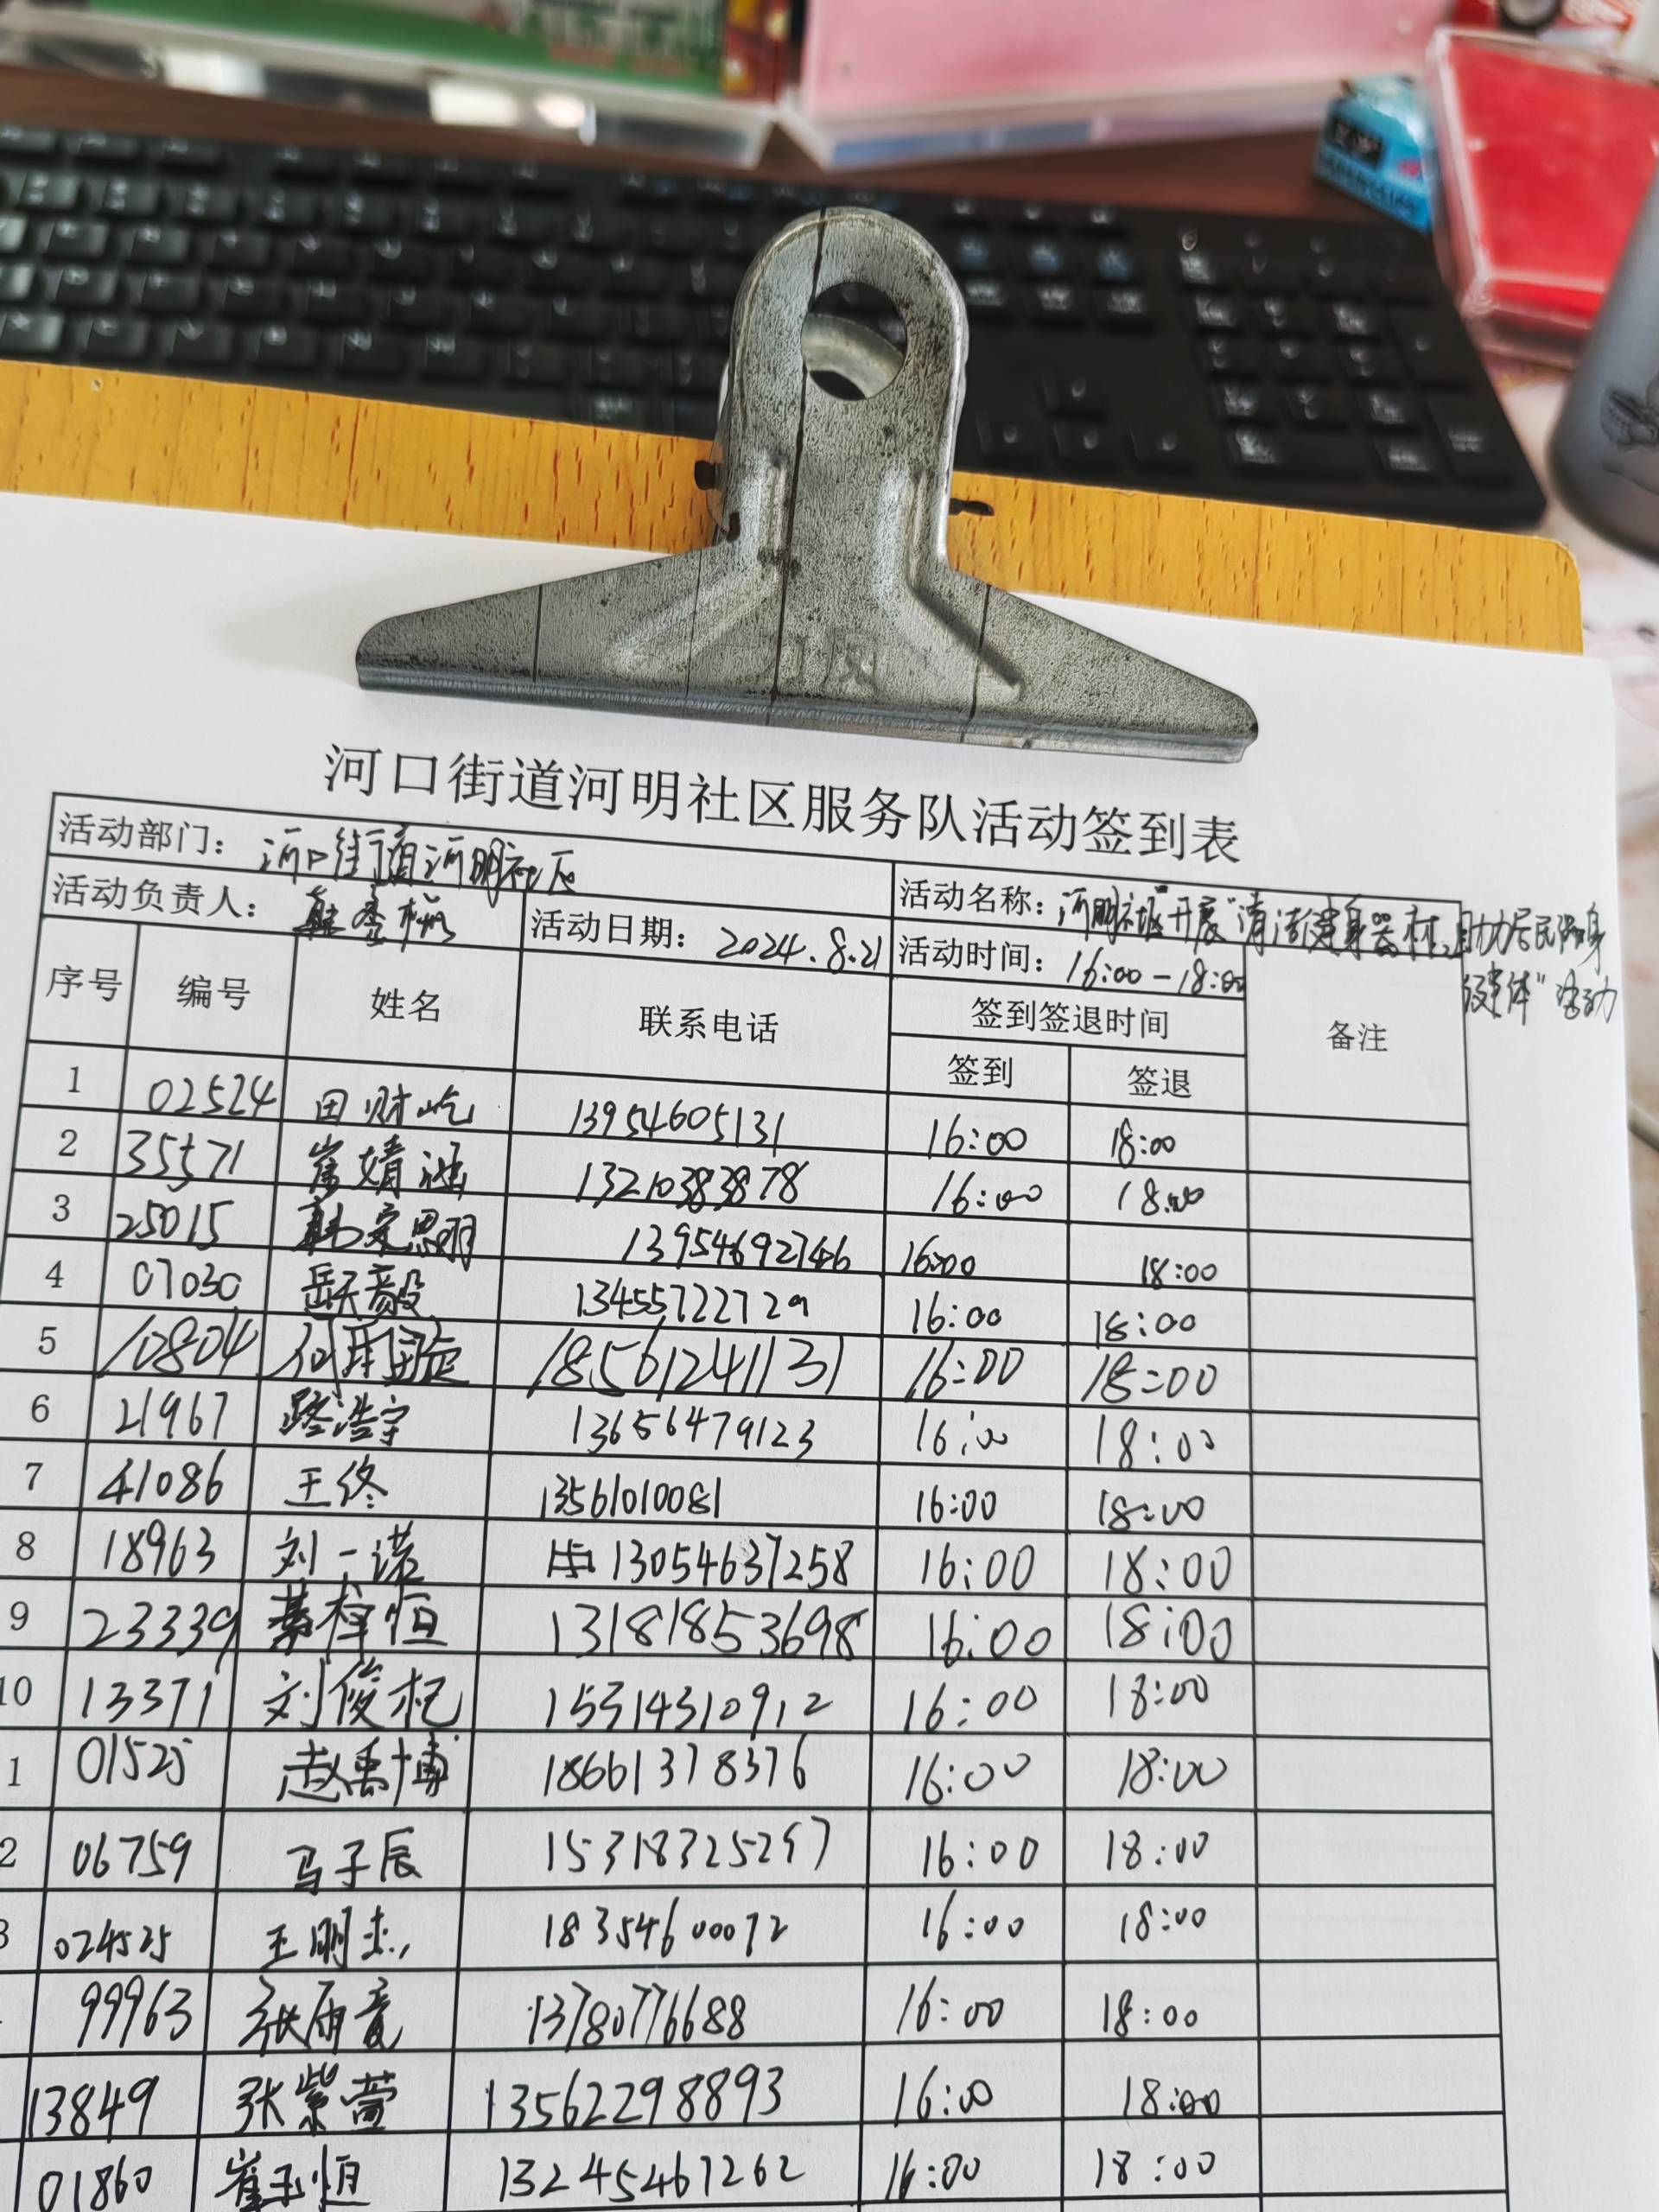 河口街道河明社区服务队活动签到表
活动部门：河口街道河明社区
活动名称：河明社区开展“清洁健身器材，助力居民强身健体”活动
活动负责人：
活动日期：2024.8.21
活动时间：16:00-18:00
序号 编号 姓名 联系电话 签到签退时间 备注
签到 签退
1 02524 田财屹 13954605131 16:00 18:00
2 35571 崔婧涵 13210383878 16:00 18:00
3 25015 韩定恩羽 13954692746 16:00 18:00
4 07030 岳天毅 13455722729 16:00 18:00
5 10804 18561241131 16:00 18:00
6 21967 路浩宇 13656479123 16:00 18:00
7 41086 王终 13561010081 16:00 18:00
8 18963 刘一诺 13054637258 16:00 18:00
9 23339 綦梓恒 13181853698 16:00 18:00
10 13371 刘俊杞 15314310912 16:00 18:00
1 01525 赵禹博 18661378376 16:00 18:00
2 06759 马子辰 15318325297 16:00 18:00
3 024525 王明杰 18354600072 16:00 18:00
99963 张雨竟 13780776688 16:00 18:00
13849 张紫萱 13562298893 16:00 18:00
01860 崔玉恒 13245467262 16:00 18:00